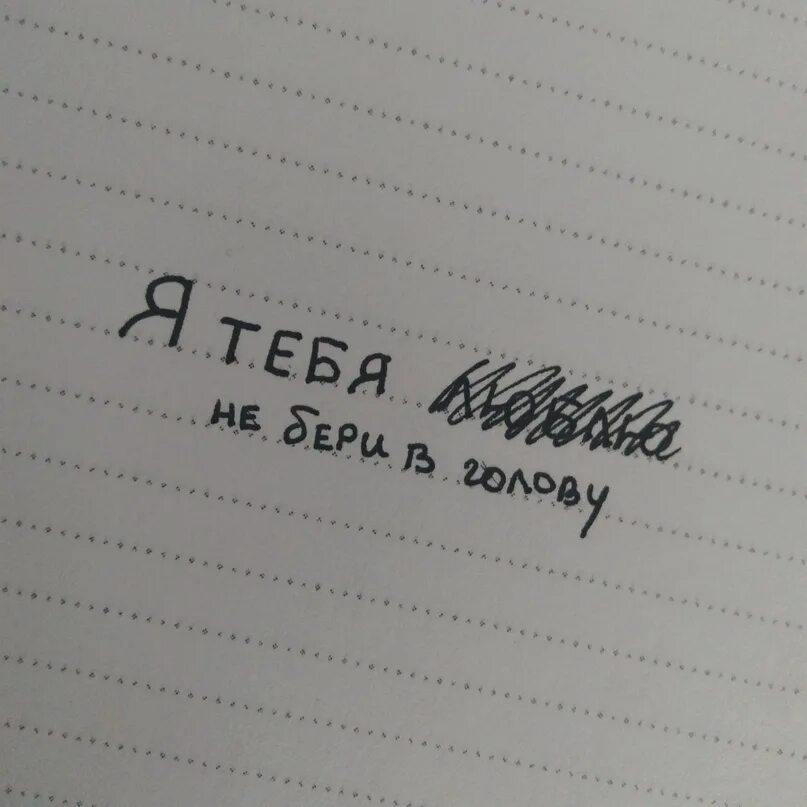 Я ТЕБЯ
не бери в голову